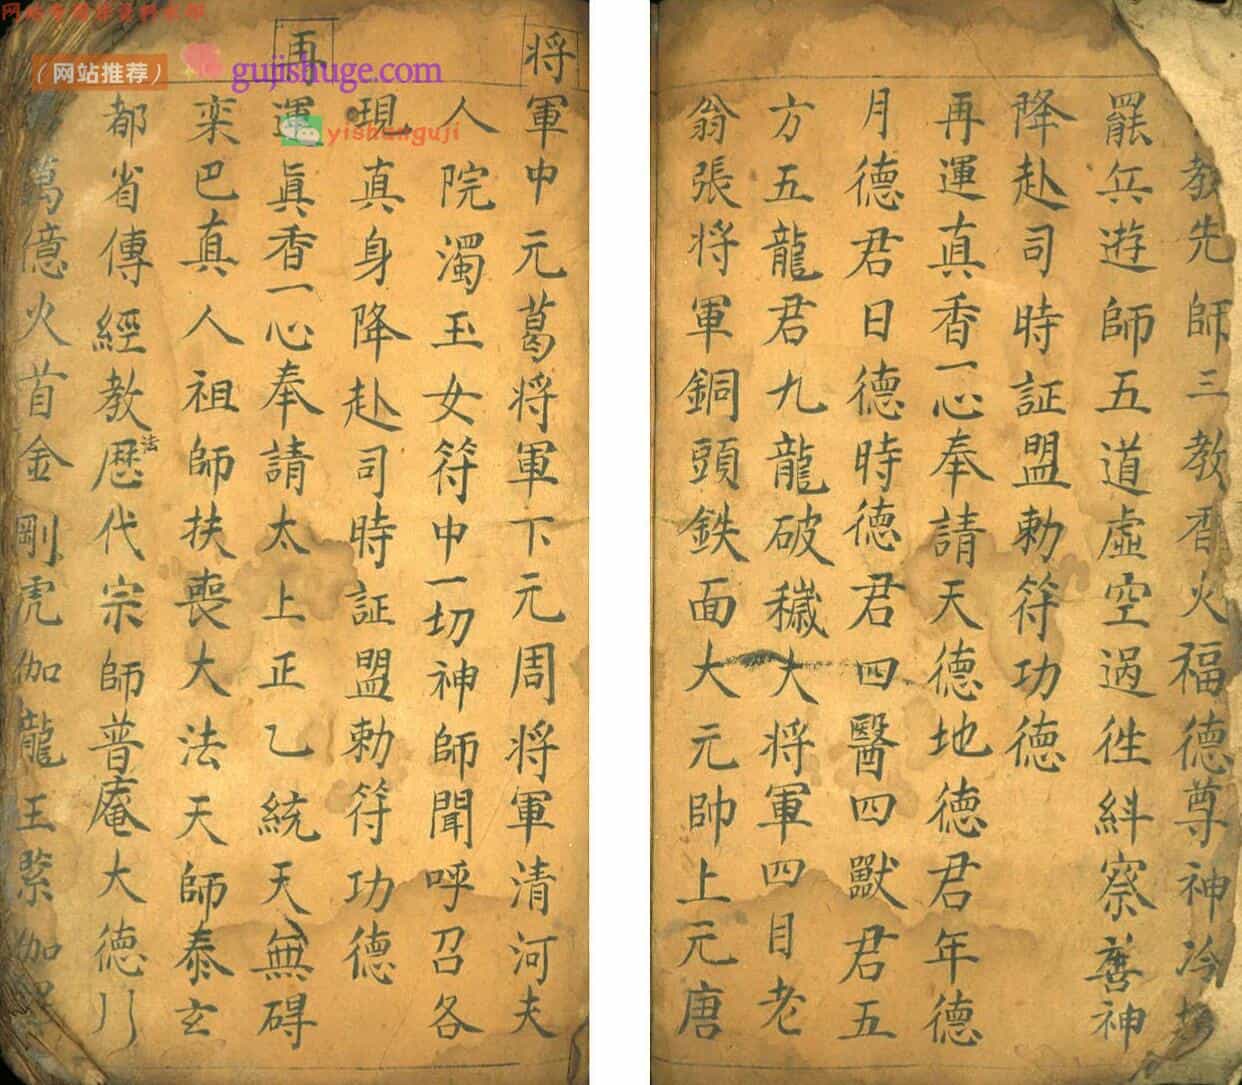 教先師三教香火福德尊神冷坛
罷兵遊師五道虛空過徃紏察善神
降赴司時証盟勅符功德
再運真香一心奉請天德地德君年德
月德君日德時德君四醫四獸君五
方五龍君九龍破穢大将軍四目老
翁張将軍銅頭鉄面大元帥上元唐
将
軍中元葛将軍下元周将軍清河夫
人院濁玉女符中一切神師聞呼召各
現真身降赴司時証盟勅符功德
再
運眞香一心奉請太上正乙統天無碍
栾巴真人祖師扶喪大法天師泰玄
都省傳經教法歷代宗師普庵大德
萬億火首金剛虎伽龍王繋伽
(网站推荐)
gujishuge.com
yishunguji